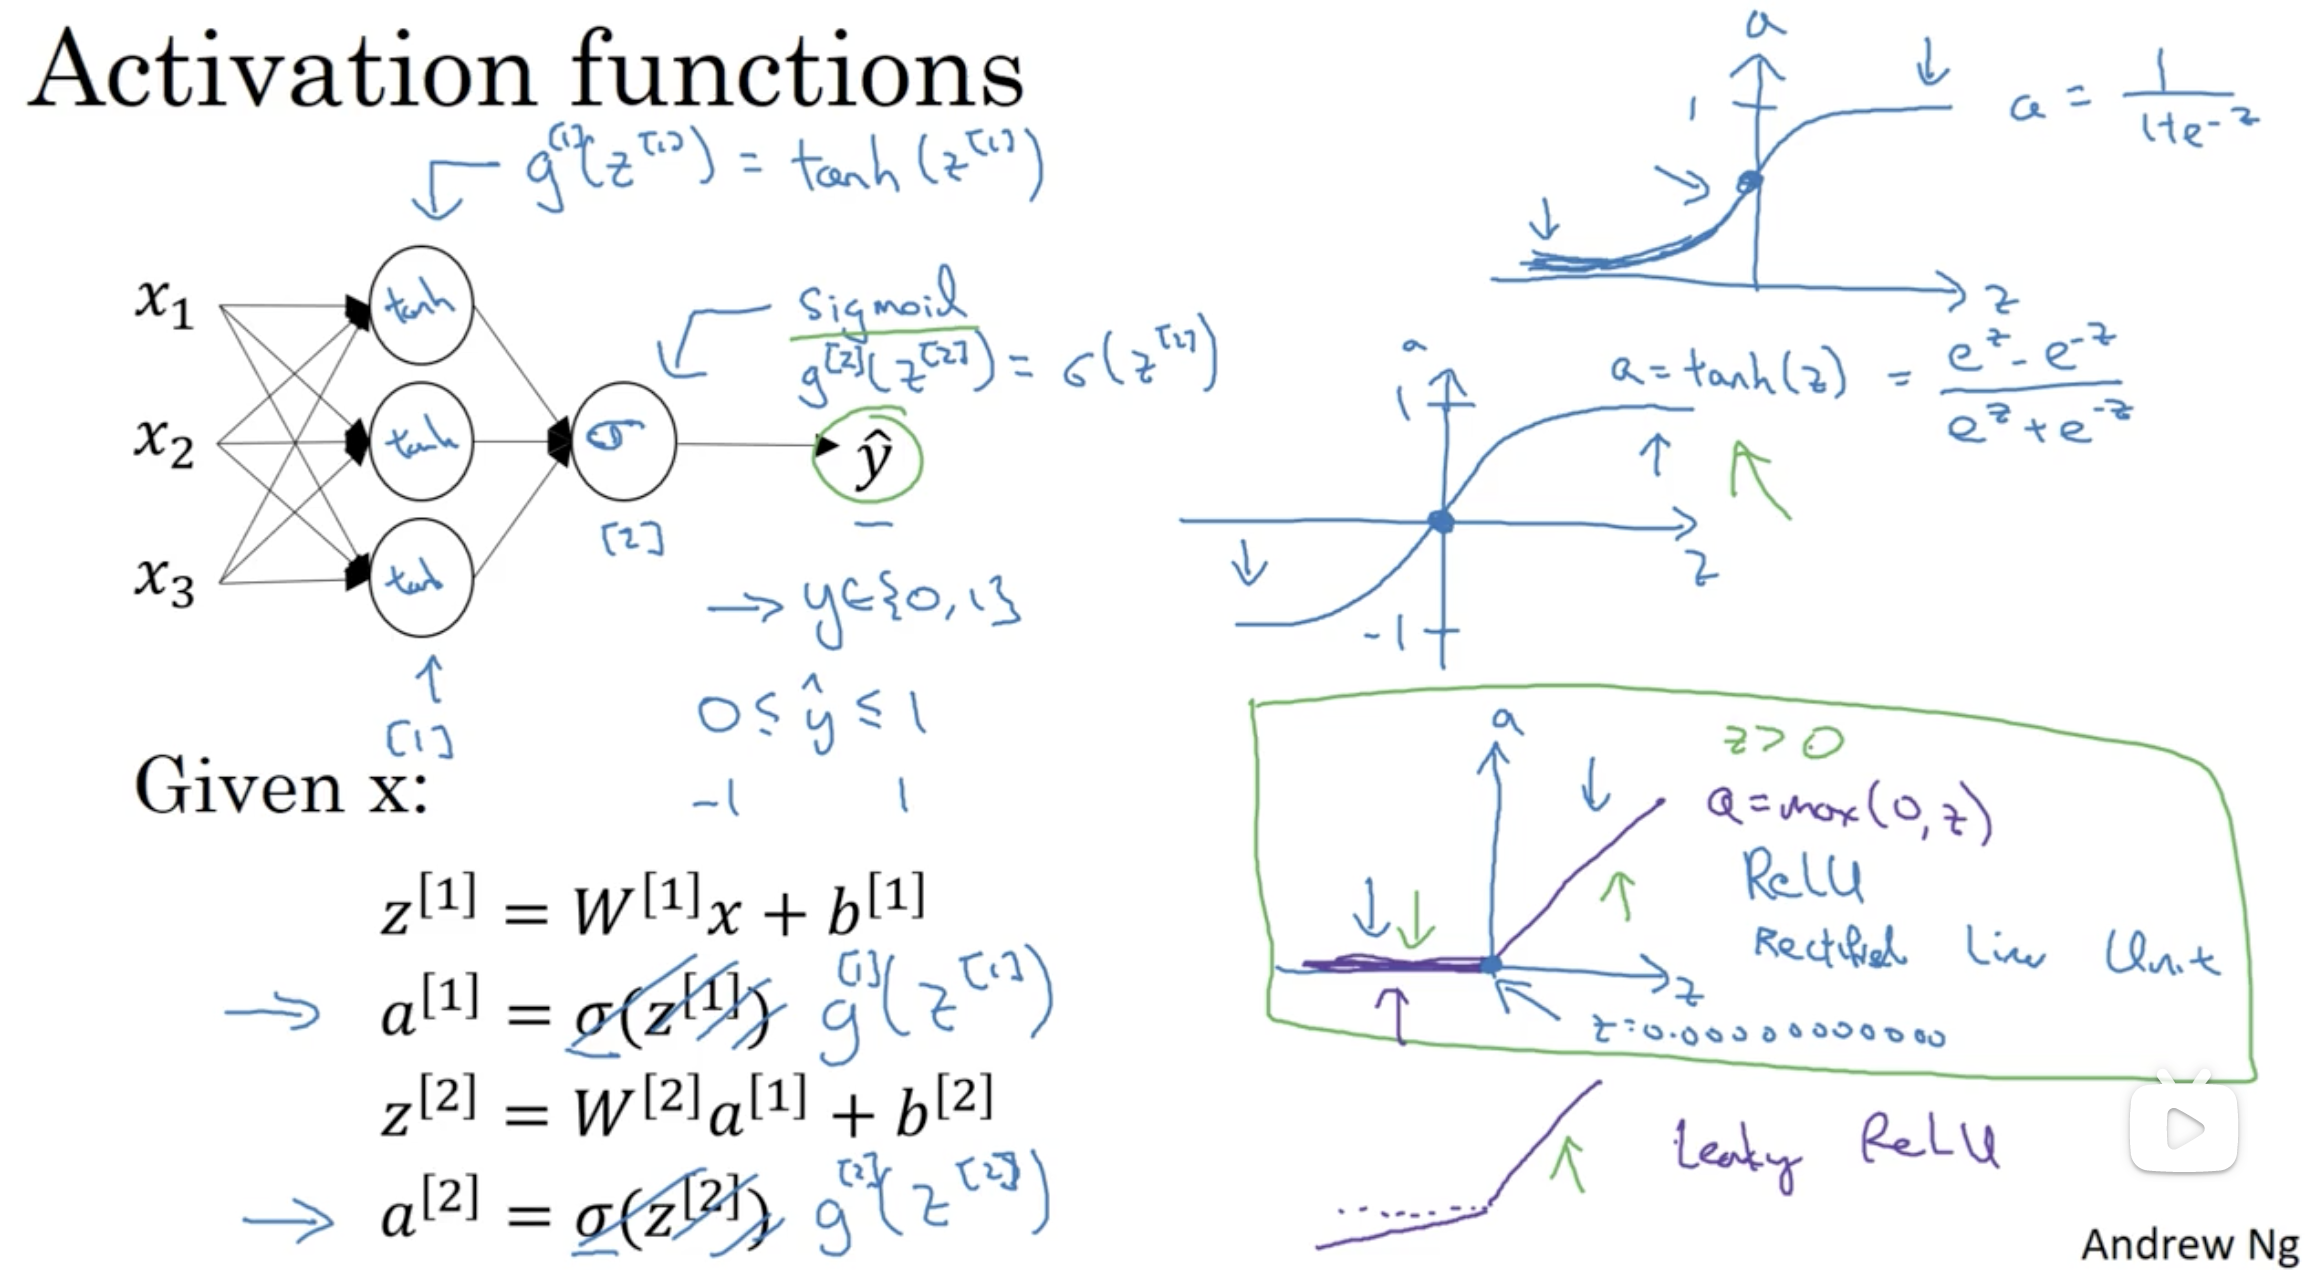 Activation functions
g^[1](z^[1]) = tanh(z^[1])
x₁
x₂
x₃
tanh
tanh
tanh
[1]
σ
[2]
Sigmoid
g^[2](z^[2]) = σ(z^[2])
ŷ
→ y∈{0,1}
0 ≤ ŷ ≤ 1
-1 1
Given x:
z^[1] = W^[1]x + b^[1]
→ a^[1] = σ(z^[1]) g^[1](z^[1])
z^[2] = W^[2]a^[1] + b^[2]
→ a^[2] = σ(z^[2]) g^[2](z^[2])
a
1
z
a = 1/(1+e^-z)
a
1
-1
z
a = tanh(z) = (e^z - e^-z)/(e^z + e^-z)
a
z
z > 0
a = max(0,z)
ReLU
Rectified Linear Unit
z=0.00000000000
Leaky ReLU
Andrew Ng